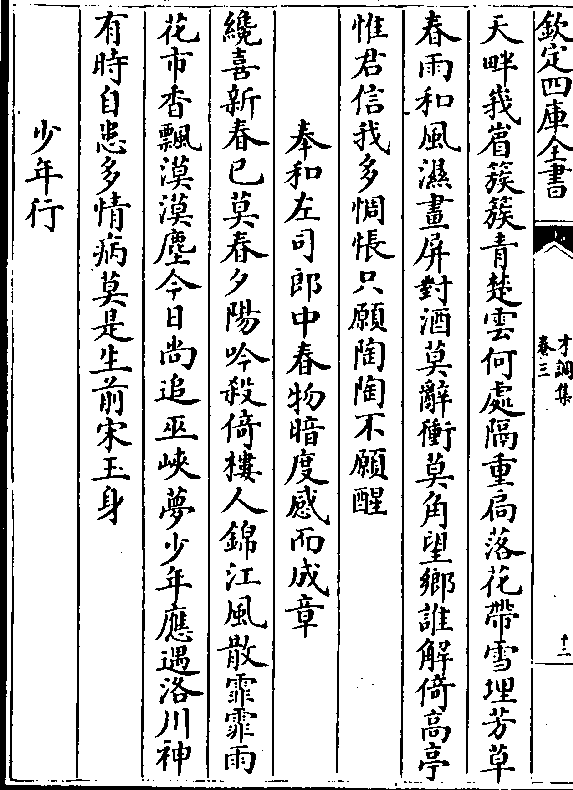 欽定四庫全書
才調集
卷三
十二
天畔峩眉簇簇青楚雲何處隔重扃落花帶雪埋芳草
春雨和風濕畫屏對酒莫辭衝莫角望鄉誰解倚高亭
惟君信我多惆悵只願陶陶不願醒
奉和左司郎中春物暗度感而成章
纔喜新春已莫春夕陽吟殺倚樓人錦江風散霏霏雨
花市香飄漠漠塵今日尚追巫峽夢少年應遇洛川神
有時自患多情病莫是生前宋玉身
少年行